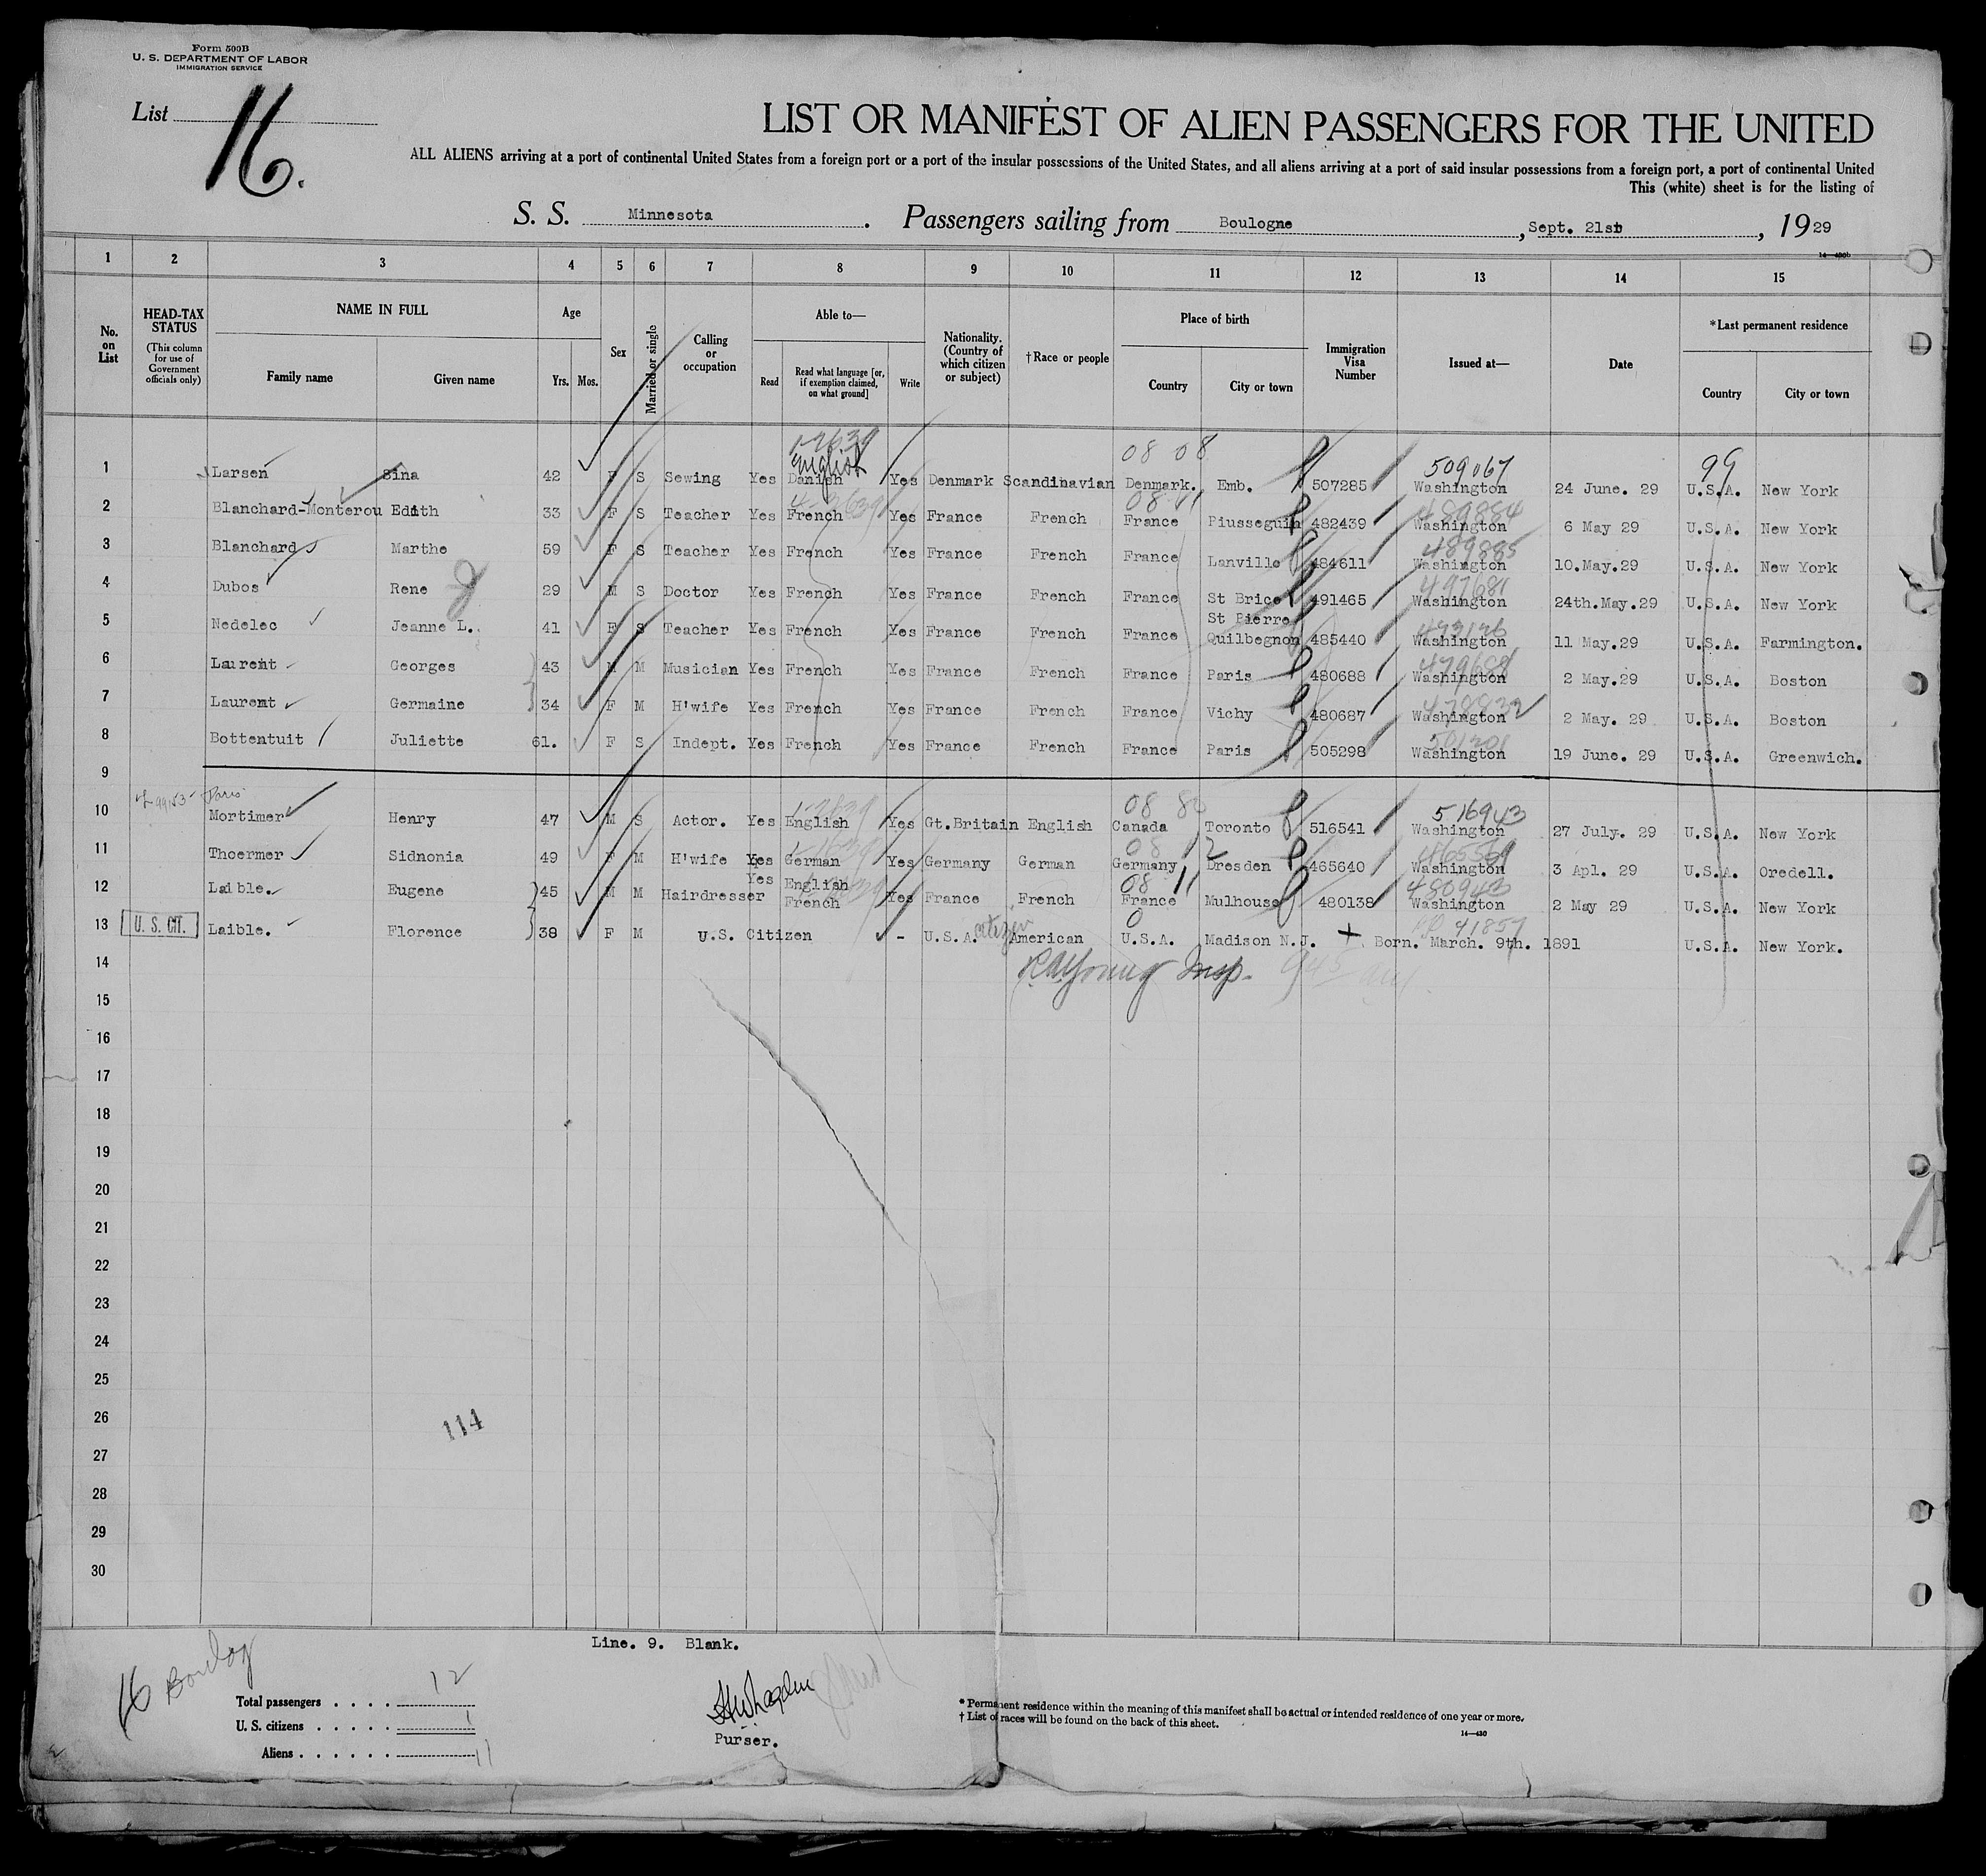 Form 500B
U. S. DEPARTMENT OF LABOR
IMMIGRATION SERVICE
List 16.
LIST OR MANIFEST OF ALIEN PASSENGERS FOR THE UNITED
ALL ALIENS arriving at a port of continental United States from a foreign port or a port of the insular possessions of the United States, and all aliens arriving at a port of said insular possessions from a foreign port, a port of continental United
This (white) sheet is for the listing of
S. S. Minnesota. Passengers sailing from Boulogne, Sept. 21st, 1929
14—430b
1 2 3 4 5 6 7 8 9 10 11 12 13 14 15
No. on List
HEAD-TAX STATUS
(This column for use of Government officials only)
NAME IN FULL
Family name
Given name
Age
Yrs. Mos.
Sex
Married or single
Calling or occupation
Able to—
Read
Read what language [or, if exemption claimed, on what ground]
Write
Nationality. (Country of which citizen or subject)
†Race or people
Place of birth
Country
City or town
Immigration Visa Number
Issued at—
Date
*Last permanent residence
Country
City or town
English 08 08 509067 99
1 Larsen Sina 42 F S Sewing Yes Danish Yes Denmark Scandinavian Denmark. Emb. 507285 Washington 24 June. 29 U.S.A. New York
489884
2 Blanchard-Monterou Edith 33 F S Teacher Yes French Yes France French France Piusseguin 482439 Washington 6 May 29 U.S.A. New York
489885
3 Blanchard Marthe 59 F S Teacher Yes French Yes France French France Lanville 484611 Washington 10.May.29 U.S.A. New York
497681
4 Dubos Rene 29 M S Doctor Yes French Yes France French France St Brice 491465 Washington 24th.May.29 U.S.A. New York
5 Nedelec Jeanne L. 41 F S Teacher Yes French Yes France French France St Pierre Quilbegnon 485440 Washington 11 May.29 U.S.A. Farmington.
6 Laurent Georges 43 M M Musician Yes French Yes France French France Paris 480688 Washington 2 May.29 U.S.A. Boston
478832
7 Laurent Germaine 34 F M H'wife Yes French Yes France French France Vichy 480687 Washington 2 May. 29 U.S.A. Boston
501201
8 Bottentuit Juliette 61. F S Indept. Yes French Yes France French France Paris 505298 Washington 19 June. 29 U.S.A. Greenwich.
9
Paris 08 80 516943
10 Mortimer Henry 47 M S Actor. Yes English Yes Gt.Britain English Canada Toronto 516541 Washington 27 July. 29 U.S.A. New York
08 12
11 Thoermer Sidnonia 49 F M H'wife Yes German Yes Germany German Germany Dresden 465640 Washington 3 Apl. 29 U.S.A. Oredell.
08 11 480943
12 Laible. Eugene 45 M M Hairdresser Yes English French Yes France French France Mulhouse 480138 Washington 2 May 29 U.S.A. New York
citizen 0 41857
13 U. S. CIT. Laible. Florence 38 F M U.S. Citizen - U.S.A. American U.S.A. Madison N.J. Born. March. 9th. 1891 U.S.A. New York.
14 Young Insp. 945 am
15
16
17
18
19
20
21
22
23
24
25
26
114
27
28
29
30
Line. 9. Blank.
16
Total passengers . . . . 12
U. S. citizens . . . . . 1
Aliens . . . . . . 11
Purser.
* Permanent residence within the meaning of this manifest shall be actual or intended residence of one year or more.
† List of races will be found on the back of this sheet.
14—430